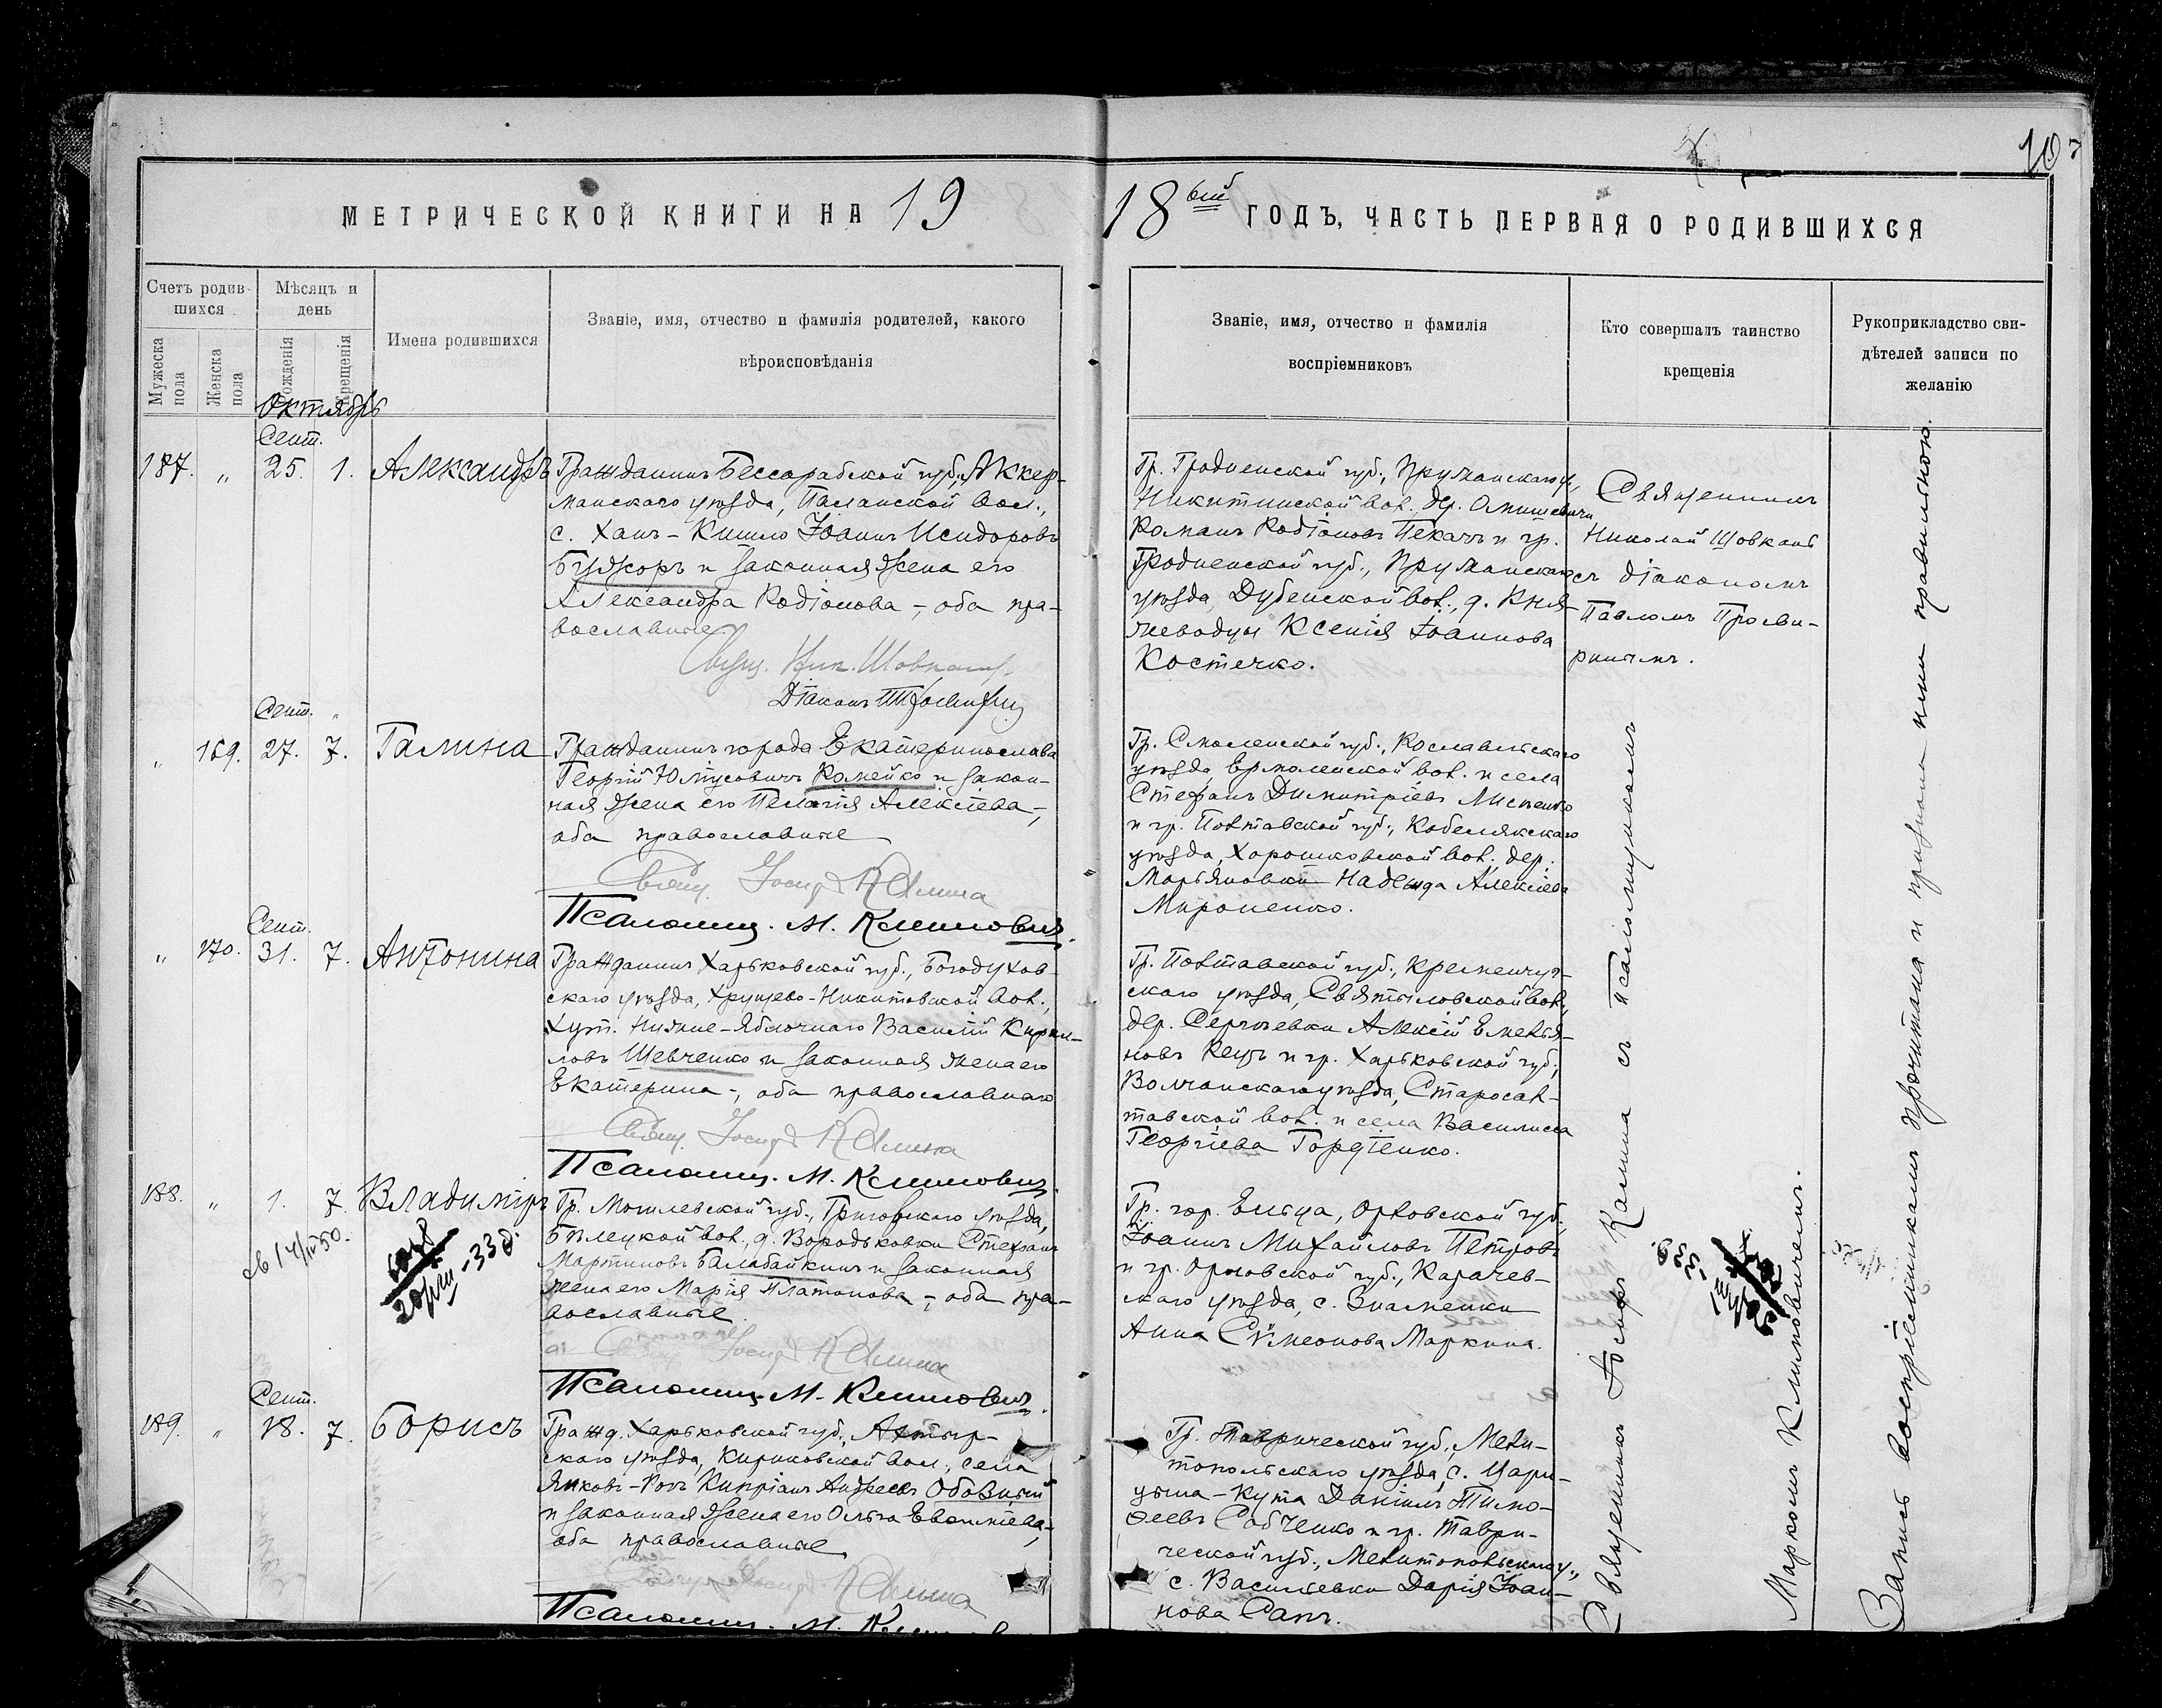 107
МЕТРИЧЕСКОЙ КНИГИ НА 19
18ый ГОДЪ, ЧАСТЬ ПЕРВАЯ О РОДИВШИХСЯ
Счетъ родив-
шихся
Мѣсяцъ и
день
Мужеска пола
Женска пола
Рожденія
Крещенія
Имена родившихся
Званіе, имя, отчество и фамилія родителей, какого
вѣроисповѣданія
Званіе, имя, отчество и фамилія
воспріемниковъ
Кто совершалъ таинство
крещенія
Рукоприкладство сви-
дѣтелей записи по
желанію
Октябрь
Сент.
187. „ 25. 1. Александръ
Гражданинъ Бессарабской губ., Аккер-
манскаго уѣзда, Паланской вол.,
с. Ханъ-Кишло Іоаннъ Исидоровъ
Буджоръ и законная жена его
Александра Родіонова -, оба пра-
вославные.
Свящ. Ник. Шовкопл
Діаконъ Просвирнин
Гр. Гродненской губ., Пружанскаго у.,
Никитинской вол., др.
Романъ Родіоновъ Пекачъ и гр.
Гродненской губ., Пружанскаго
уѣзда, Дубенской вол., д. Кня-
жеводцы Ксенія Іоаннова
Костечко.
Священникъ
Николай
съ діакономъ
Павломъ Просви-
рнинымъ.
Сент. „
„ 169. 27. 7. Галина
Гражданинъ города Екатеринослава
Георгій Ромейко и закон-
ная жена его Пелагія Алексіева -,
оба православные
Свящ. Іосифъ Калина
Псаломщ. М. Климовичъ.
Гр. Смоленской губ., Рославльскаго
уѣзда, Ермоленской вол. и села
Стефанъ Димитріевъ Лисненко
и гр. Полтавской губ., Кобелякскаго
уѣзда, Хорошковской вол. дер.
Марьяновки Надежда Алексіева
Мироненко.
Сент.
„ 170. 31. 7. Антонина
Гражданинъ Харьковской губ., Богодухов-
скаго уѣзда, Хрущево-Никитовской вол.,
хут. Нижне-Яблочнаго Василій Кирил-
ловъ Шевченко и законная жена его
Екатерина -, оба православнаго
Свящ. Іосифъ Калина
Псаломщ. М. Климовичъ.
Гр. Полтавской губ., Кременчуг-
скаго уѣзда, Святиловской вол.,
дер. Сергѣевки Алексій Емелья-
новъ Кецъ и гр. Харьковской губ.,
Волчанскаго уѣзда, Старосал-
товской вол. и села Василисса
Георгіева Гордіенко.
188. „ 1. 7. Владиміръ
св 14/III 50.
-33 г.
Гр. Могилевской губ., уѣзда,
Бѣлецкой вол., д. Вородьковки Стефанъ
Мартиновъ Балабайкинъ и законная
жена его Марія Платонова -, оба пра-
вославные.
Свящ. Іосифъ Калина
Псаломщ. М. Климовичъ.
Гр. гор. Ельца, Орловской губ.,
Іоаннъ Михайловъ Петровъ
и гр. Орловской губ., Карачев-
скаго уѣзда, с. Знаменки
Анна Сѵмеонова Маркина.
Сент.
189. „ 18. 7. Борисъ
Гражд. Харьковской губ., Ахтыр-
скаго уѣзда, Кириковской вол., села
Яиковъ-Рогъ Кипріанъ Андреевъ Обозный
и законная жена его Ольга Евѳиміева -,
оба православные
Свящ. Іосифъ Калина
Псаломщ. М. Климовичъ
Гр. Таврической губ., Мели-
топольскаго уѣзда, с. Цари-
цына-Кута Даніилъ Тимо-
ѳеевъ Собченко и гр. Таври-
ческой губ., Мелитопольскаго у.,
с. Васильевки Дарія Іоан-
нова Сапъ.
Священникъ Іосифъ Калина съ псаломщикомъ
Маркомъ Климовичемъ.
Запись воспріемниками прочитана и признана ими правильною.